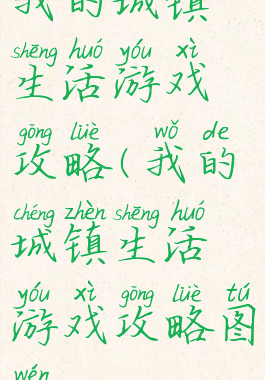 我的城镇
shēng huó yóu xì
生活游戏
gōng lüè wǒ de
攻略(我的
chéng zhèn shēng huó
城镇生活
yóu xì gōng lüè tú
游戏攻略图
wén